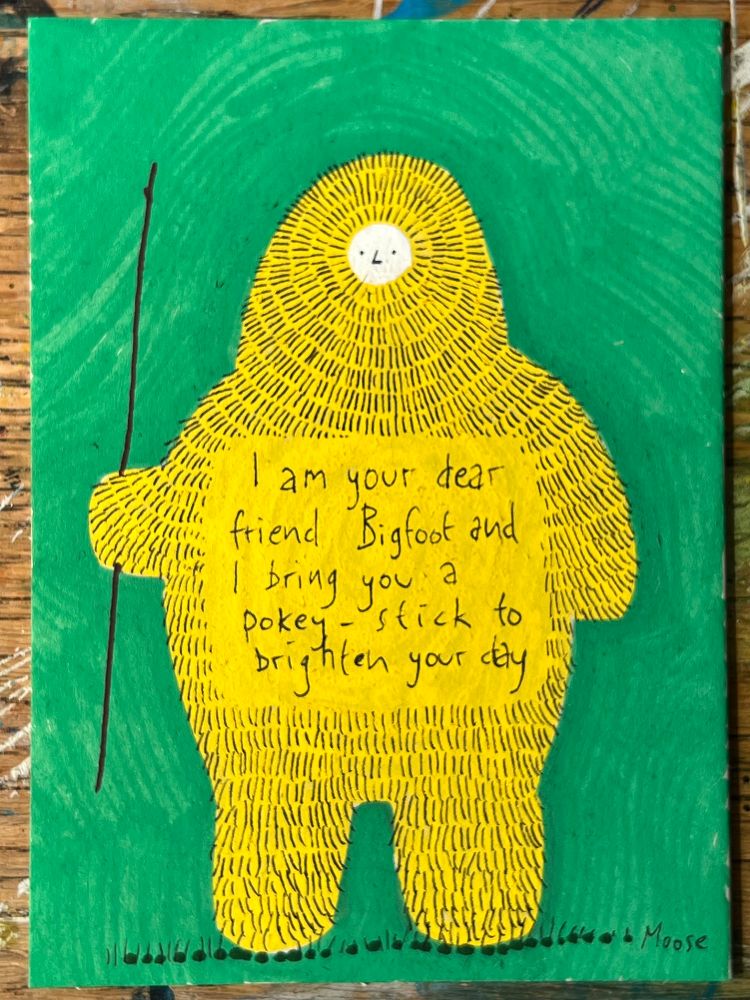 I am your dear
friend Bigfoot and
I bring you a
pokey-stick to
brighten your day
Moose